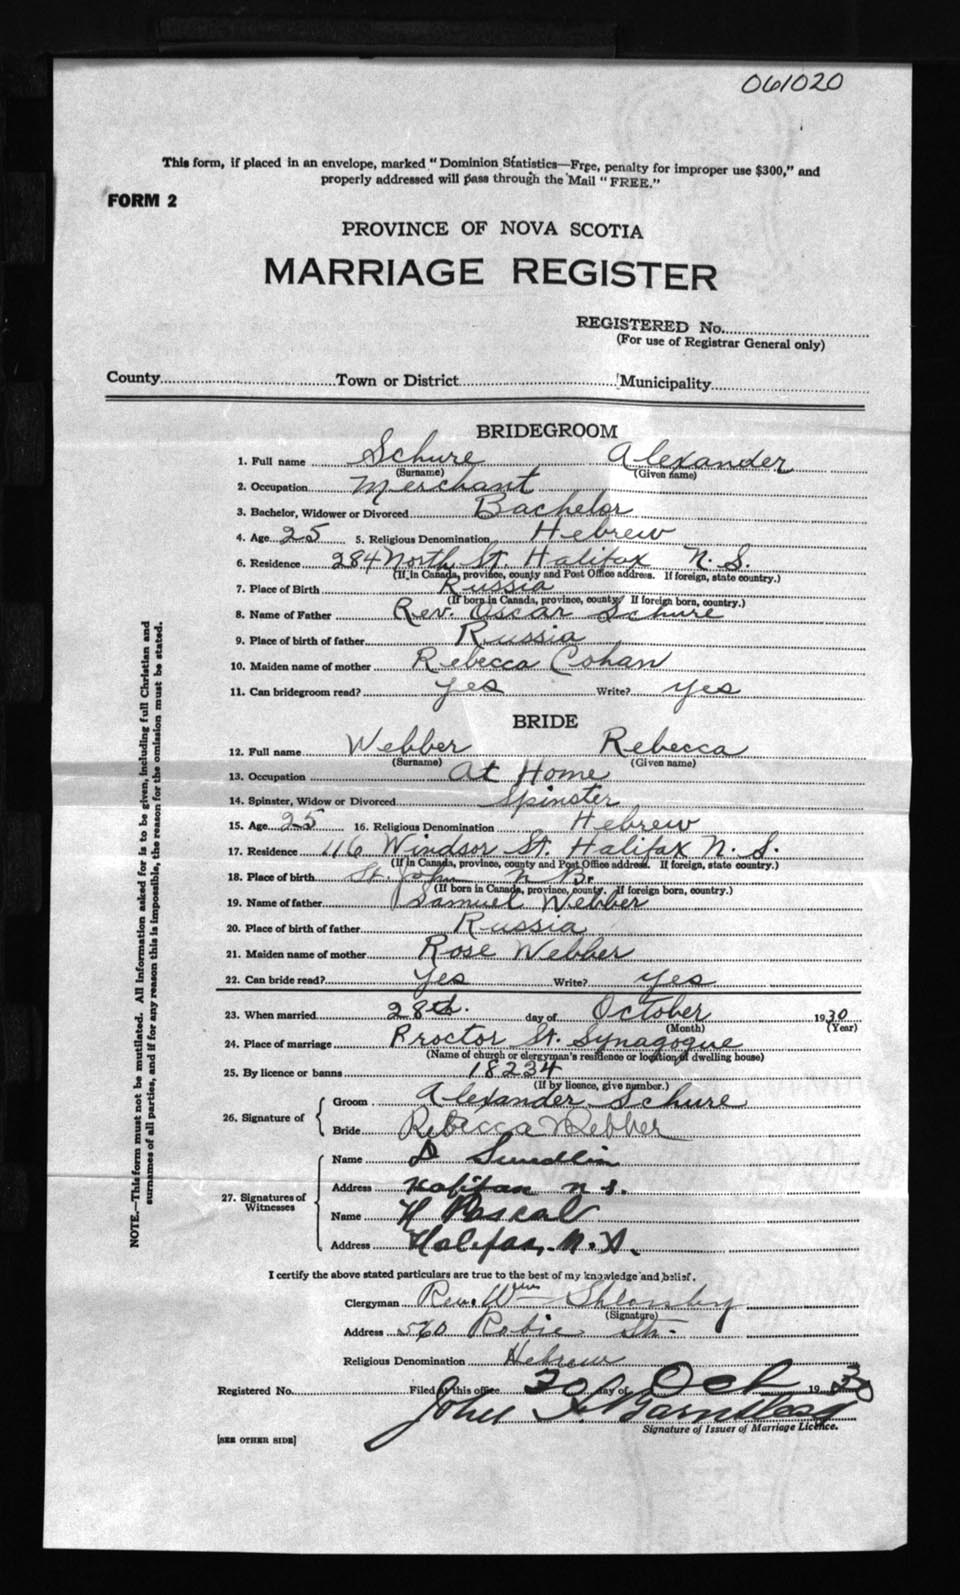 061020
This form, if placed in an envelope, marked "Dominion Statistics—Free, penalty for improper use $300," and
properly addressed will pass through the Mail "FREE."
FORM 2
PROVINCE OF NOVA SCOTIA
MARRIAGE REGISTER
REGISTERED No.
(For use of Registrar General only)
County Town or District Municipality
BRIDEGROOM
1. Full name Schure Alexander
(Surname) (Given name)
2. Occupation Merchant
3. Bachelor, Widower or Divorced Bachelor
4. Age 25 5. Religious Denomination Hebrew
6. Residence 284 North St. Halifax N. S.
(If in Canada, province, county and Post Office address. If foreign, state country.)
7. Place of Birth Russia
(If born in Canada, province, county. If foreign born, country.)
8. Name of Father Rev. Oscar Schure
9. Place of birth of father Russia
10. Maiden name of mother Rebecca Cohan
11. Can bridegroom read? yes Write? yes
BRIDE
12. Full name Webber Rebecca
(Surname) (Given name)
13. Occupation At Home
14. Spinster, Widow or Divorced Spinster
15. Age 25 16. Religious Denomination Hebrew
17. Residence 116 Windsor St. Halifax N. S.
(If in Canada, province, county and Post Office address. If foreign, state country.)
18. Place of birth St. John N B.
(If born in Canada, province, county. If foreign born, country.)
19. Name of father Samuel Webber
20. Place of birth of father Russia
21. Maiden name of mother Rose Webber
22. Can bride read? Yes Write? yes
23. When married 28th. day of October 1930
(Month) (Year)
24. Place of marriage Proctor St. Synagogue
(Name of church or clergyman's residence or location of dwelling house)
25. By licence or banns 18234
(If by licence, give number.)
26. Signature of Groom Alexander Schure
Bride Rebecca Webber
27. Signatures of Witnesses
Name
Address Halifax N S.
Name H Pascal
Address Halifax, N. S.
I certify the above stated particulars are true to the best of my knowledge and belief.
Clergyman Rev. Wm
(Signature)
Address 560 Robie St.
Religious Denomination Hebrew
Registered No. Filed at this office 30 day of Oct 1930
John
Signature of Issuer of Marriage Licence.
[SEE OTHER SIDE]
NOTE.—This form must not be mutilated. All information asked for is to be given, including full Christian and
surnames of all parties, and if for any reason this is impossible, the reason for the omission must be stated.